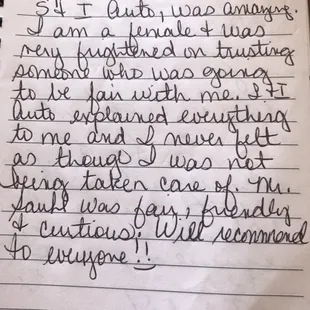 S & I Auto, was amazing.
I am a female & was
very frightened on trusting
someone who was going
to be fair with me. S & I
Auto explained everything
to me and I never felt
as though I was not
being taken care of. Mr.
was fair, friendly
& curtious! Will recommend
to everyone!!